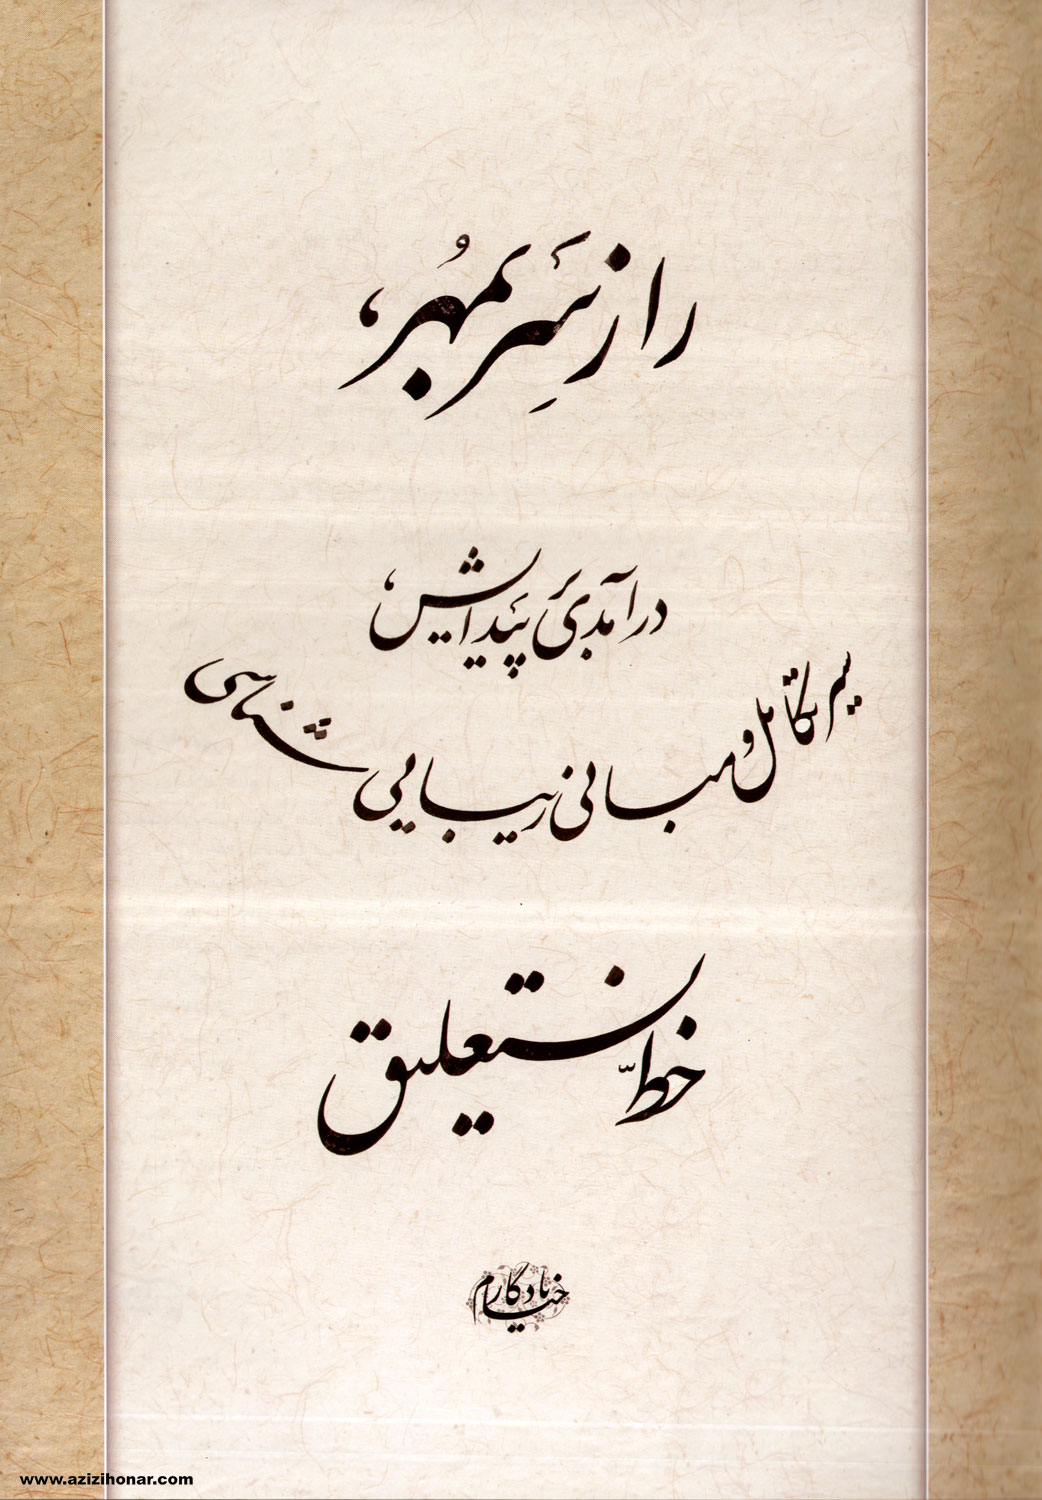 رازِ سَر بمُهر،
درآمدی بر پیدایش،
سیر تکامل و مبانی زیبایی شناسی
خطّ نستعلیق
www.azizihonar.com